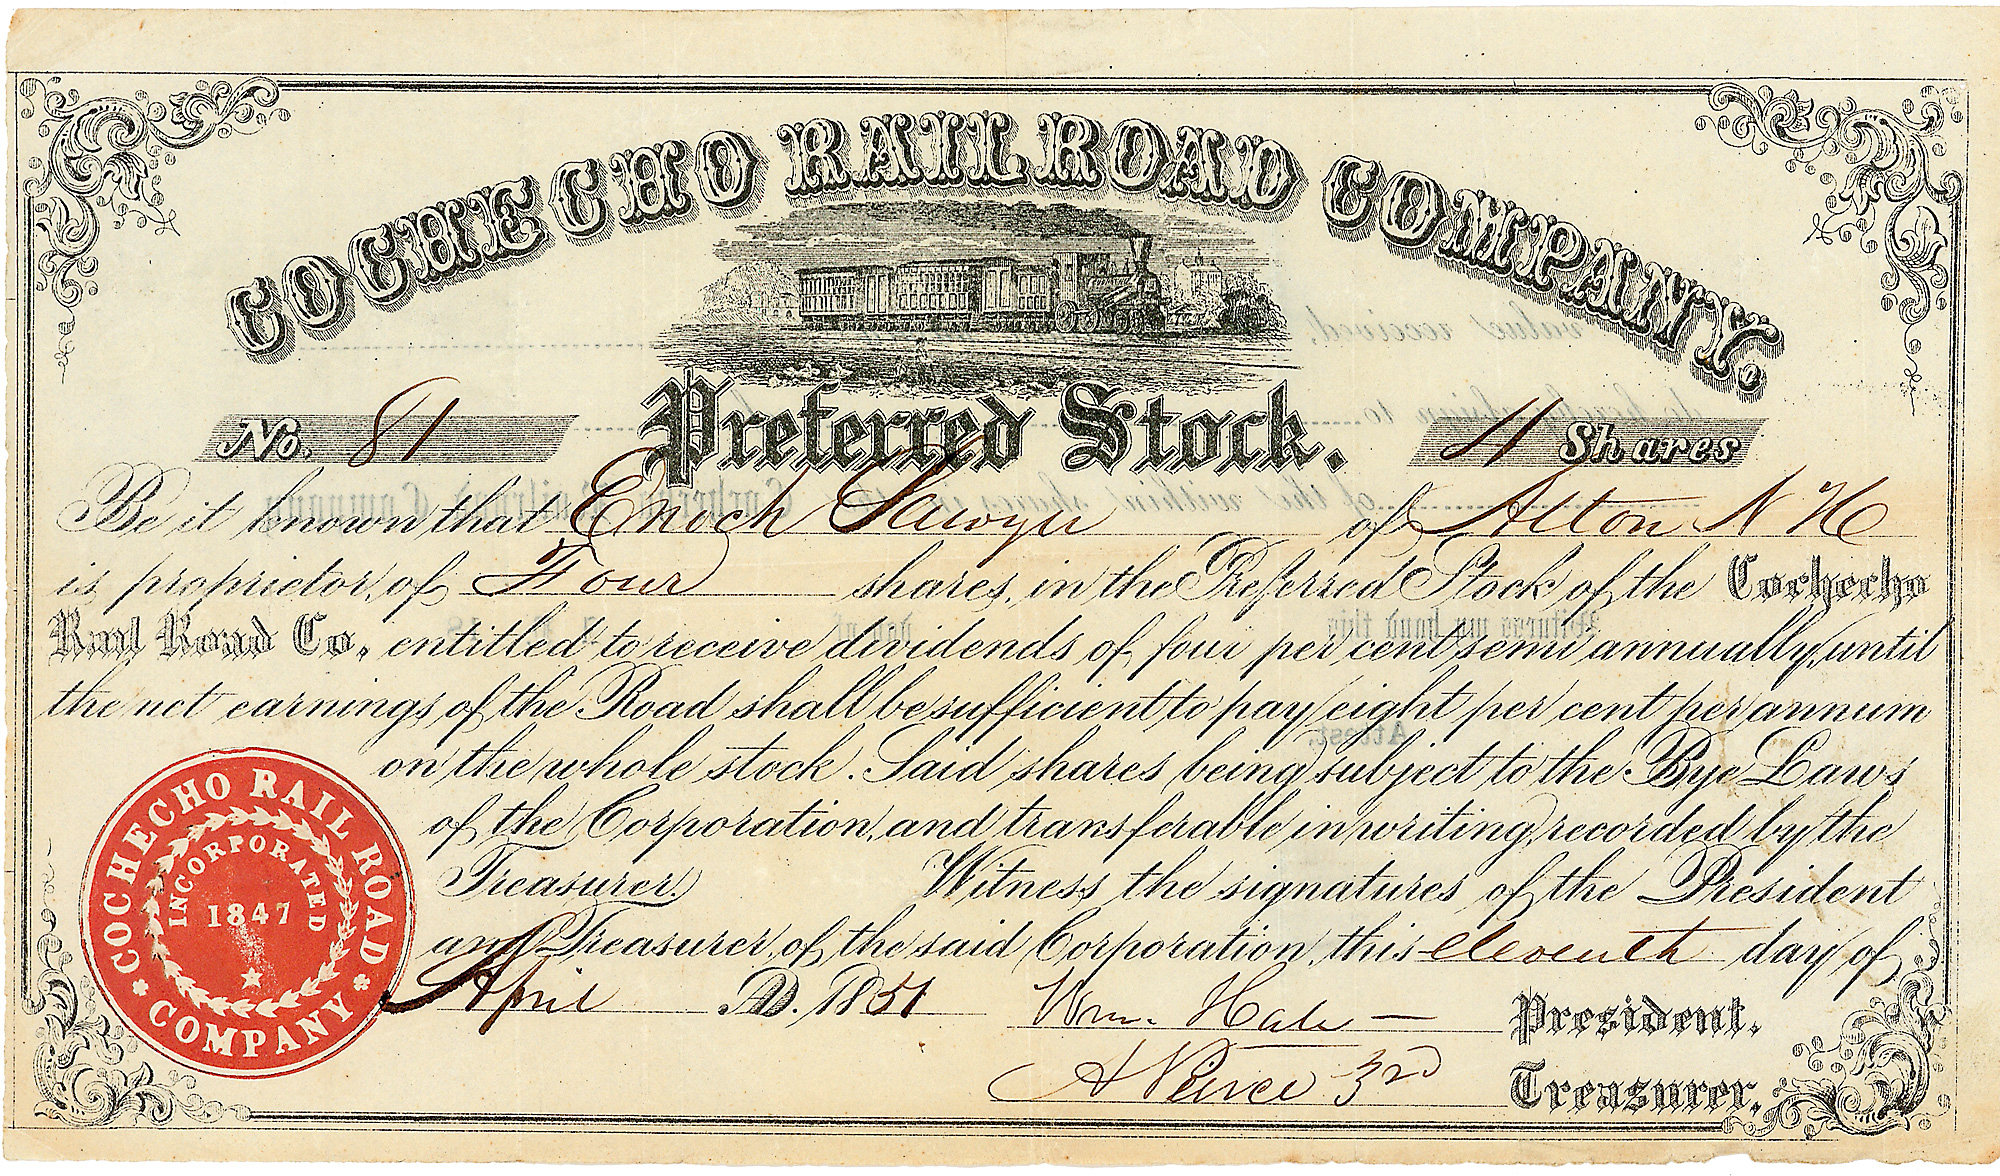 COCHECHO RAIL ROAD COMPANY.
No. 81 Preferred Stock. 4 Shares
Be it known that Enoch Sawyer of Alton N H
is proprietor, of Four shares, in the Preferred Stock of the Cochecho
Rail Road Co. entitled to receive dividends of four per cent semi annually, until
the net earnings of the Road shall be sufficient to pay eight per cent per annum
on the whole stock. Said shares being subject to the Bye Laws
of the Corporation, and transferable in writing, recorded by the
Treasurer. Witness the signatures of the President
and Treasurer, of the said Corporation, this eleventh day of
April AD. 1851 Wm. Hale President.
A Peirce 3rd Treasurer.
COCHECHO RAIL ROAD COMPANY
INCORPORATED
1847
value received,
of the within shares in the Cochecho Railroad Company
Witness my hand this day of
Attest,